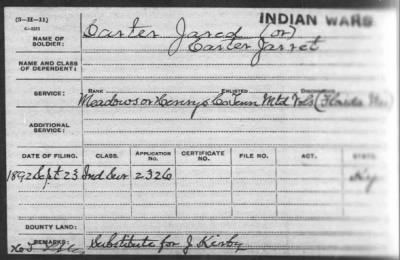 (3-H-11)
INDIAN WARS
NAME OF SOLDIER:
Carter Jared (or)
Carter Jarret
NAME AND CLASS OF DEPENDENT:
SERVICE:
RANK ENLISTED DISCHARGED
Meadows or Henry's Co Tenn Mtd Vols (Florida War)
ADDITIONAL SERVICE:
DATE OF FILING. CLASS. APPLICATION No. CERTIFICATE No. FILE NO. ACT. STATE.
1892 Sept 23 Ind Sur 2326 Ky
BOUNTY LAND:
REMARKS:
Substitute for J Kirby